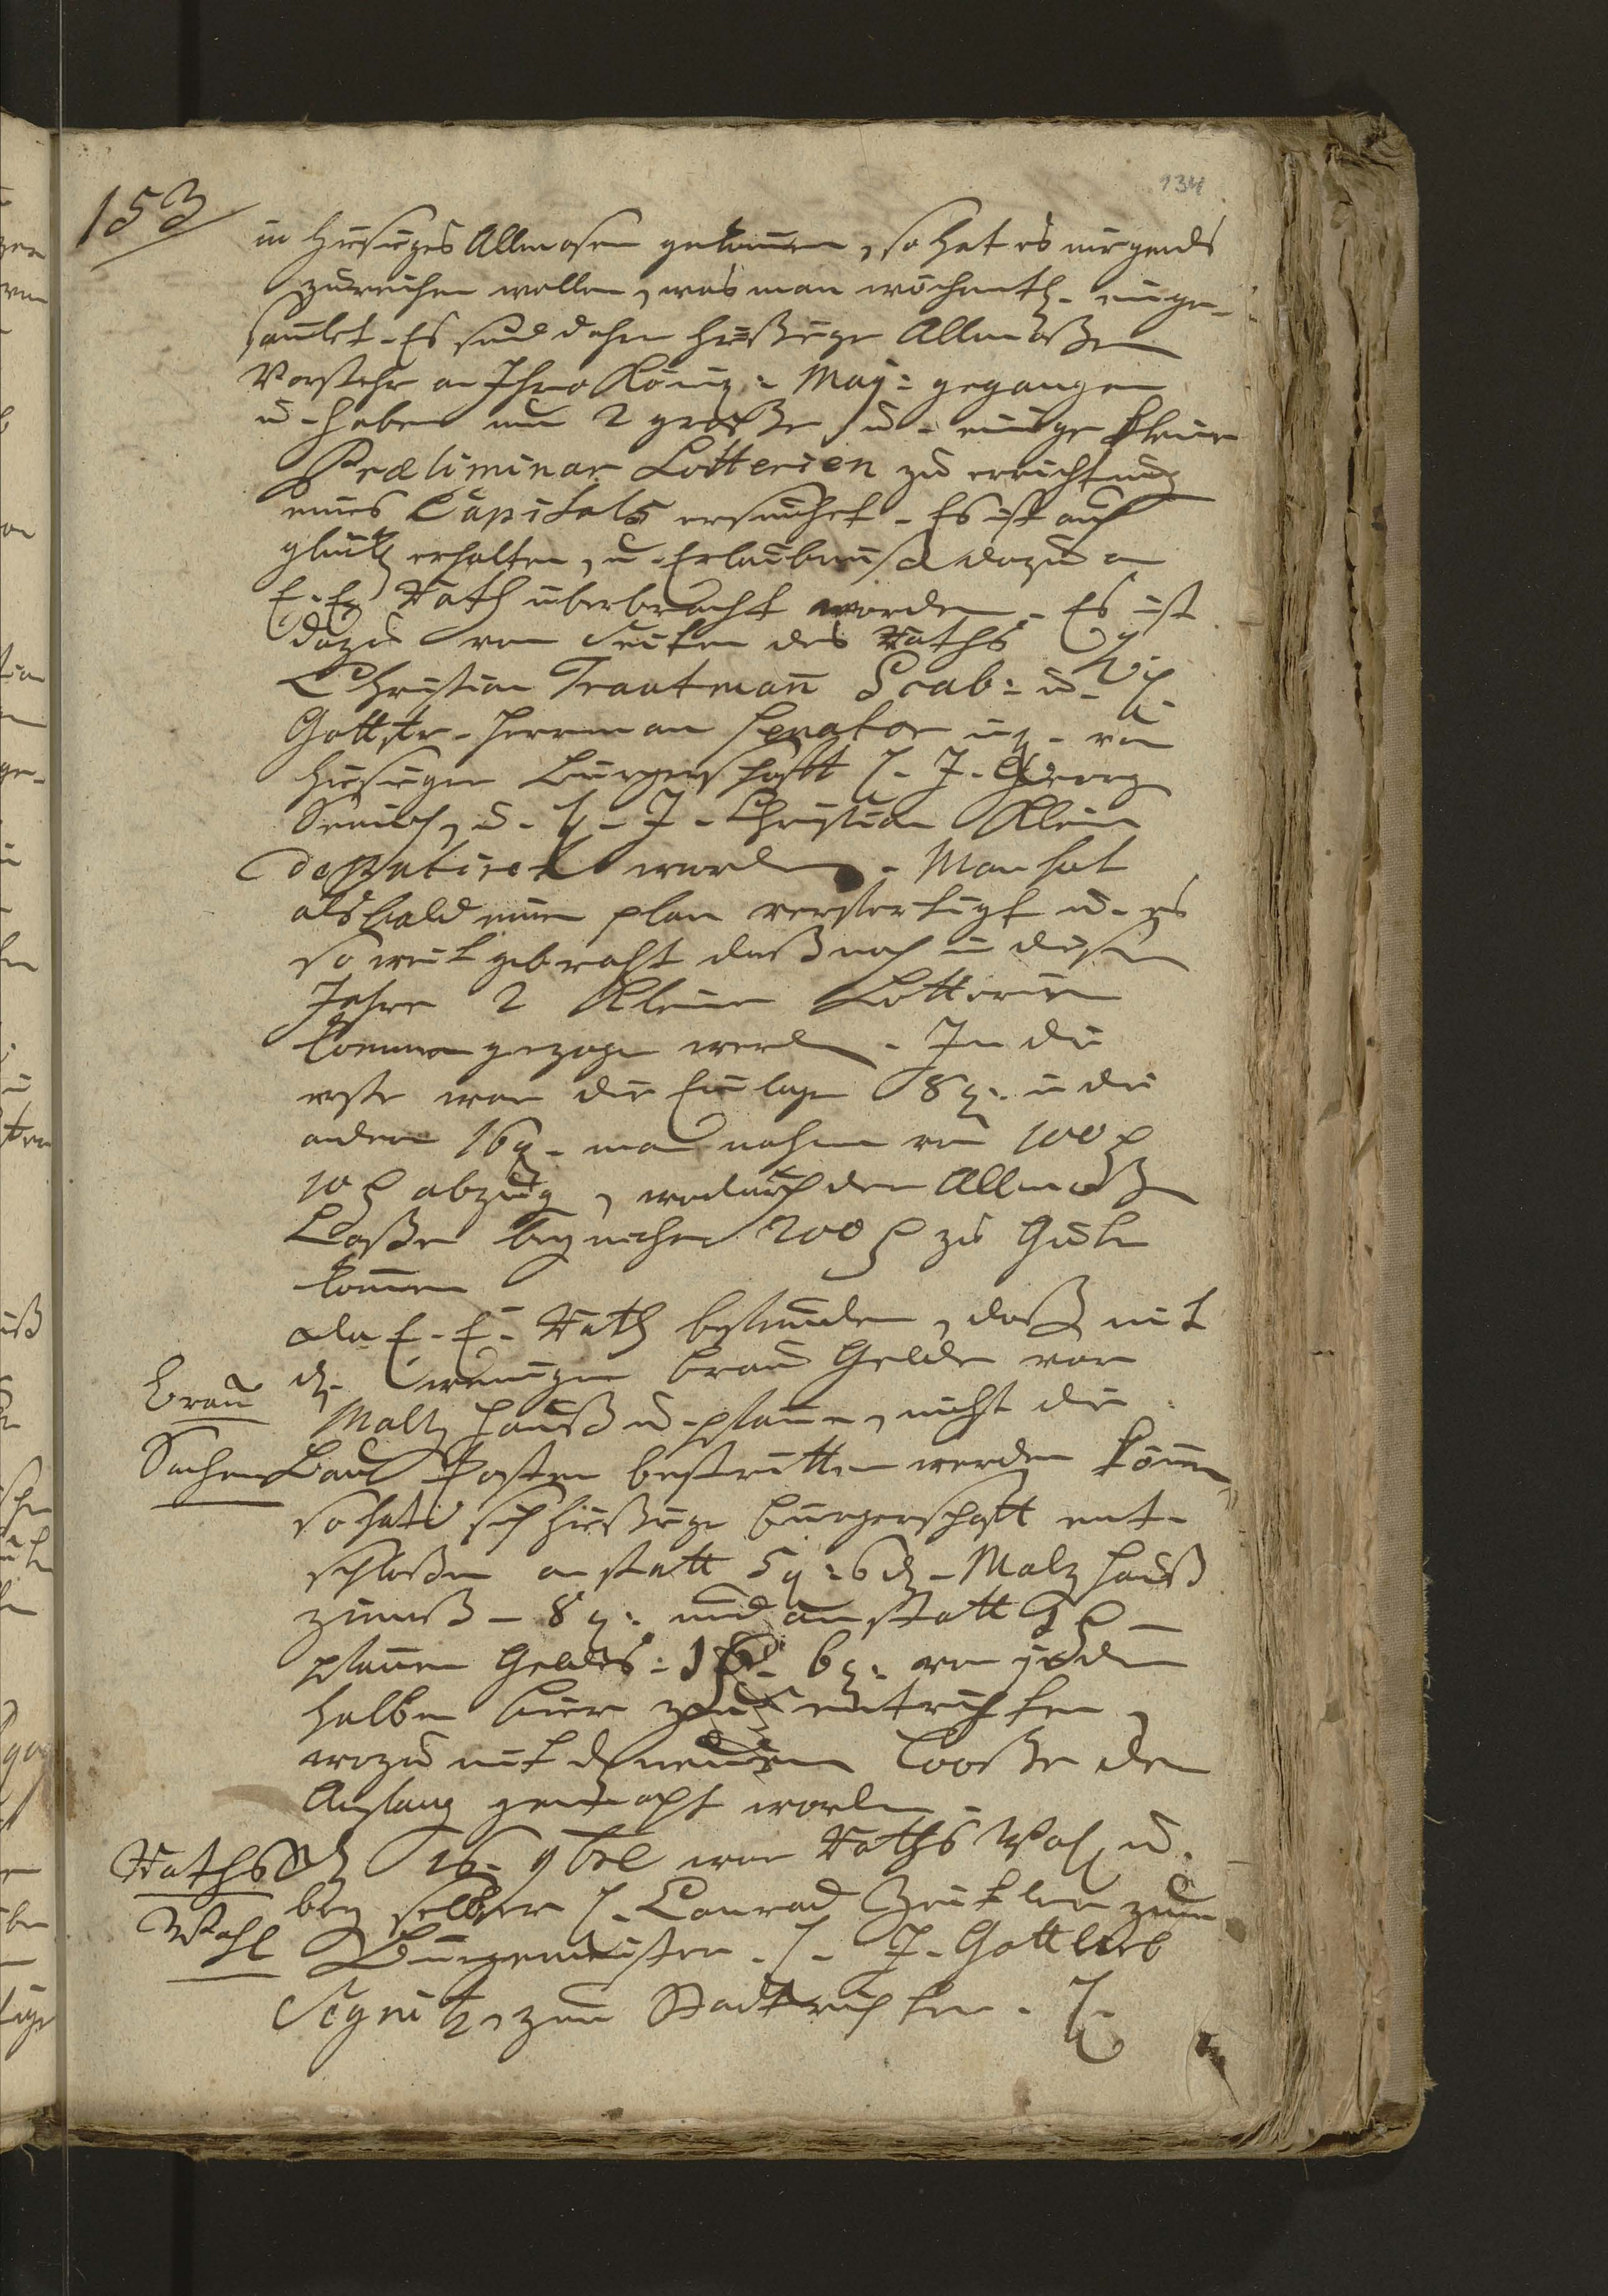 134
153
in hiesiges Allmosen gekommen, so hat es nirgends
zureichen wollen, was man wöchentl. einge-
samlet. Es sind dahero hießige Allmoßen
Vorsteher an Ihro Königl: May: gegangen
u. haben um 2 große u. einige kleine
Præliminar Lotterien zu errichtung
eines Capitals ersuchet. Es ist auch
glückl erhalten, u. Erlaubnuß dazu an
E. E. Rath überbracht worden. Es ist
dazu von Seiten des Raths H.
Christian Trautmann Scab: u. H.
Gottfr. Herrman Senator u. von
hiesiger Burgerschafft H. J. Georg
u. H. J. Christian Klein
deputiret worden. Man hat
alsbald einen plan verfertigt u. es
so weit gebracht daß noch in diesem
Jahre 2 kleine Lotterien
können gezogen werden. In die
erste war die Einlage 8 g. in die
andere 16 g. man nahm von 100
10 abzug, wodurch der Allmoßen
Caße bey nahe 200 zu Gute
kommen
Da E. E. Rath befunden, daß mit
d. wenigen Brau Gelder von
Brau
Maltz Hauß u. pfanne, nicht die
Sachen
Bau Kosten bestritten werden können
so hat sich hießige Burgerschafft ent-
schloßen anstatt 5 g: 6 d. Maltz Hauß
zinnß – 8 g: und anstatt
pfannen Geldes: 6 g: von jeden
halben bier zu entrichten,
wozu mit d. neuen Looße der
Anfang gemacht worden.
Raths
D. 16. 9bre war Raths Wahl u.
bey selber H. Conrad zum
Wahl
Burgemeister. H. J. Gottlieb
Segnitz, zum Stadtrichter. H.